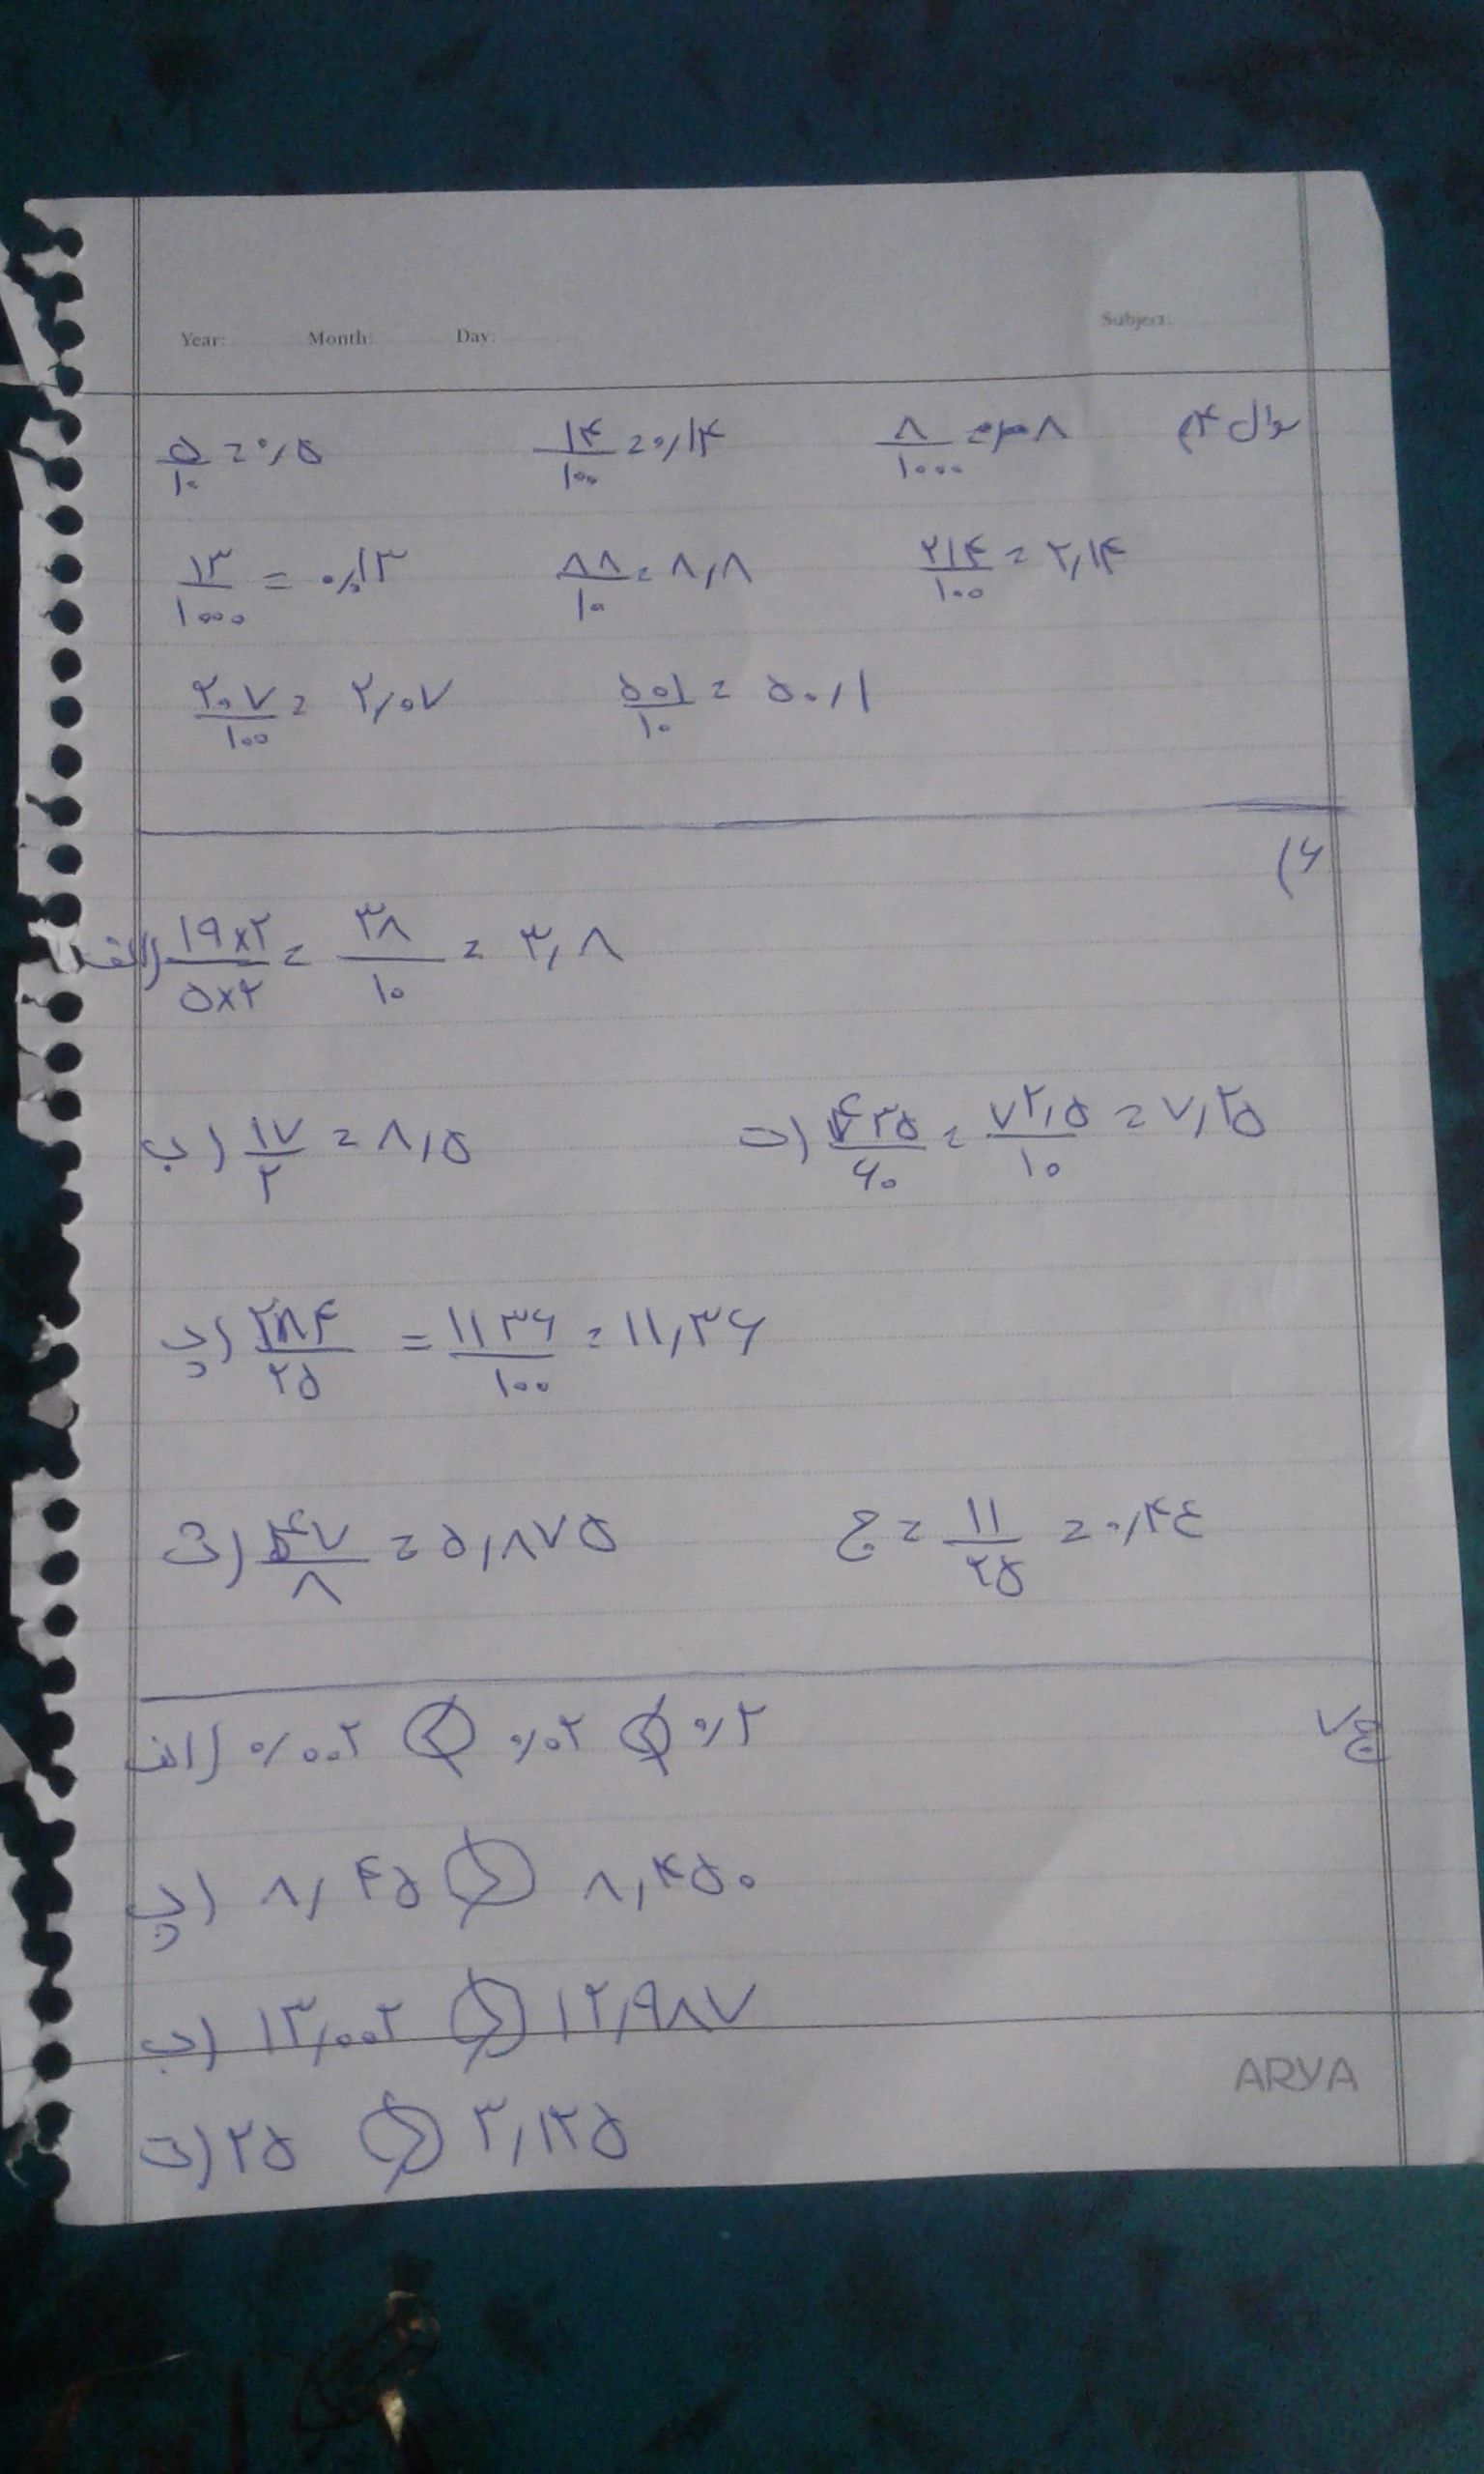 Year: Month: Day: Subject:
سوال ۴)
۵/۱۰ = ۰/۵ ۱۴/۱۰۰ = ۰/۱۴ ۸/۱۰۰۰
۱۳/۱۰۰۰ = ۰/۰۱۳ ۸۸/۱۰ = ۸/۸ ۲۱۴/۱۰۰ = ۲/۱۴
۲۰۷/۱۰۰ = ۲/۰۷ ۵۰۱/۱۰ = ۵۰/۱
۶)
الف) ۱۹×۲/۵×۲ = ۳۸/۱۰ = ۳/۸
ب) ۱۷/۲ = ۸/۵ ت) ۴۳۵/۶۰ = ۷۲/۵/۱۰ = ۷/۲۵
پ) ۲۸۴/۲۵ = ۱۱۳۶/۱۰۰ = ۱۱/۳۶
ث) ۴۷/۸ = ۵/۸۷۵ ج = ۱۱/۲۵ = ۰/۴۴
ج۷
الف) ۰/۰۰۲ ۰/۰۲ ۰/۲
پ) ۸/۴۵ ۸/۴۵۰
ب) ۱۳/۰۰۲ ۱۲/۹۸۷
ت) ۲۵ ۳/۱۲۵
ARYA